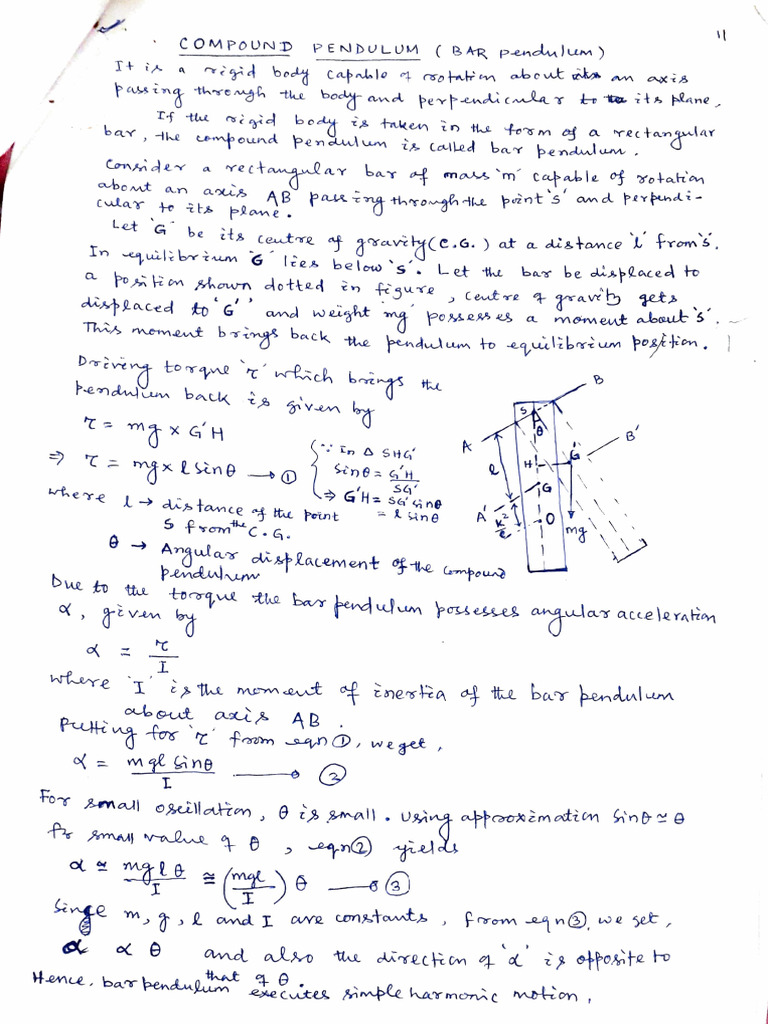 11
COMPOUND PENDULUM (BAR pendulum)
It is a rigid body capable of rotation about an axis
passing through the body and perpendicular to its plane.
If the rigid body is taken in the form of a rectangular
bar, the compound pendulum is called bar pendulum.
Consider a rectangular bar of mass 'm' capable of rotation
about an axis AB passing through the point 's' and perpendi-
cular to its plane.
Let 'G' be its centre of gravity (C.G.) at a distance 'l' from 's'.
In equilibrium 'G' lies below 's'. Let the bar be displaced to
a position shown dotted in figure, centre of gravity gets
displaced to 'G'' and weight 'mg' possesses a moment about 's'.
This moment brings back the pendulum to equilibrium position.
Driving torque 'τ' which brings the
pendulum back is given by
τ = mg × G'H
⇒ τ = mg × l sinθ → ①
(∵ In Δ SHG'
sinθ = G'H/SG'
⇒ G'H = SG' sinθ
= l sinθ
where l → distance of the point
S from the C.G.
θ → Angular displacement of the compound
pendulum
S
θ
B
A
B'
l
H
G'
G
A'
K²/l
O
mg
Due to the torque the bar pendulum possesses angular acceleration
α, given by
α = τ/I
where 'I' is the moment of inertia of the bar pendulum
about axis AB.
Putting for 'τ' from eqn ①, we get,
α = mgl sinθ/I → ②
For small oscillation, θ is small. Using approximation sinθ ≃ θ
for small value of θ, eqn ② yields
α ≅ mglθ/I ≅ (mgl/I) θ → ③
Since m, g, l and I are constants, from eqn ③, we get,
α ∝ θ and also the direction of 'α' is opposite to
that of θ.
Hence, bar pendulum executes simple harmonic motion,